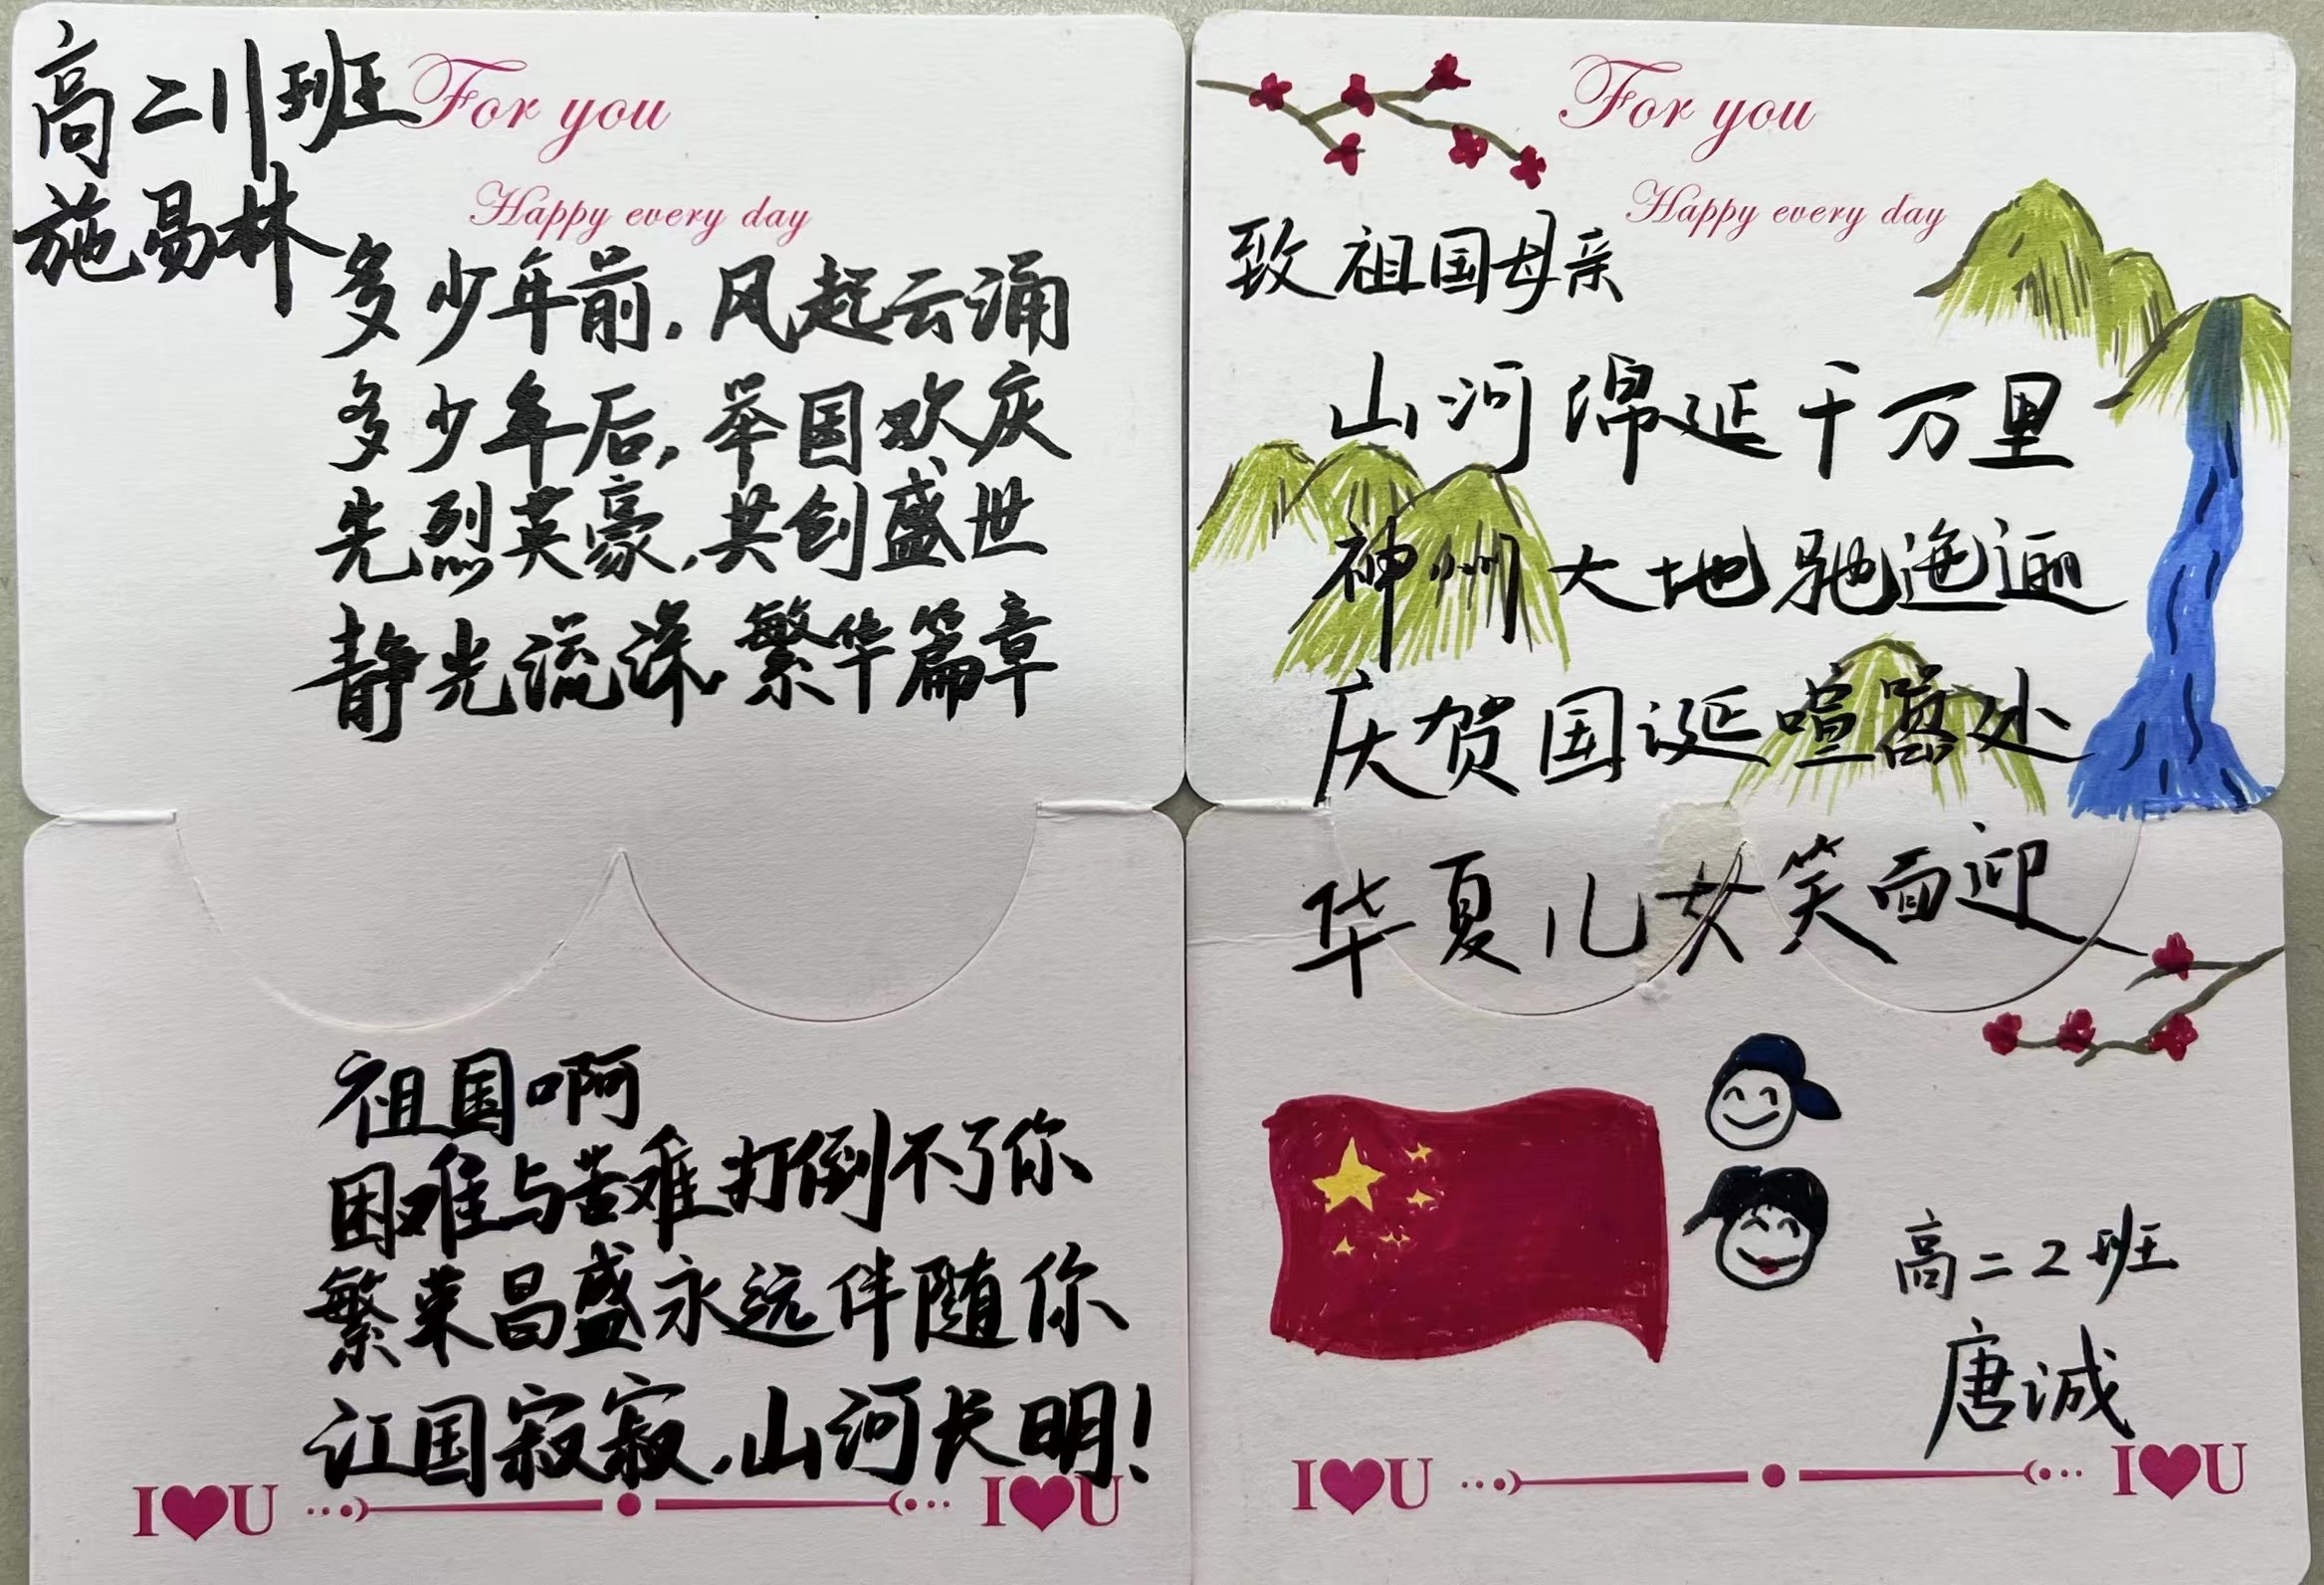 高二11班
施易林
For you
Happy every day
多少年前,风起云涌
多少年后,举国欢庆
先烈英豪,共创盛世
静光流深,繁华篇章
祖国啊
困难与苦难打倒不了你
繁荣昌盛永远伴随你
江国寂寂,山河长明!
I♥U
I♥U
For you
Happy every day
致祖国母亲
山河绵延千万里
神州大地驰迤逦
庆贺国诞喧嚣处
华夏儿女笑面迎
高二2班
唐诚
I♥U
I♥U